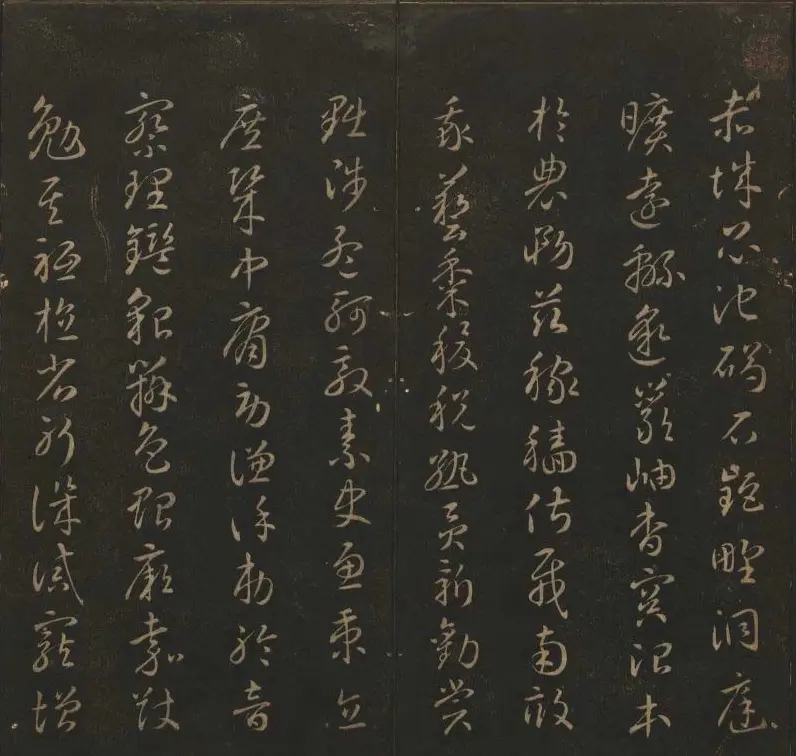 赤城昆池碣石鉅野洞庭
曠遠緜邈巖岫杳冥治本
於農務茲稼穡俶載南畝
我藝黍稷稅熟貢新勸賞
黜陟孟軻敦素史魚秉直
庶幾中庸勞謙謹敕聆音
察理鑑貌辨色貽厥嘉猷
勉其祗植省躬譏誡寵增